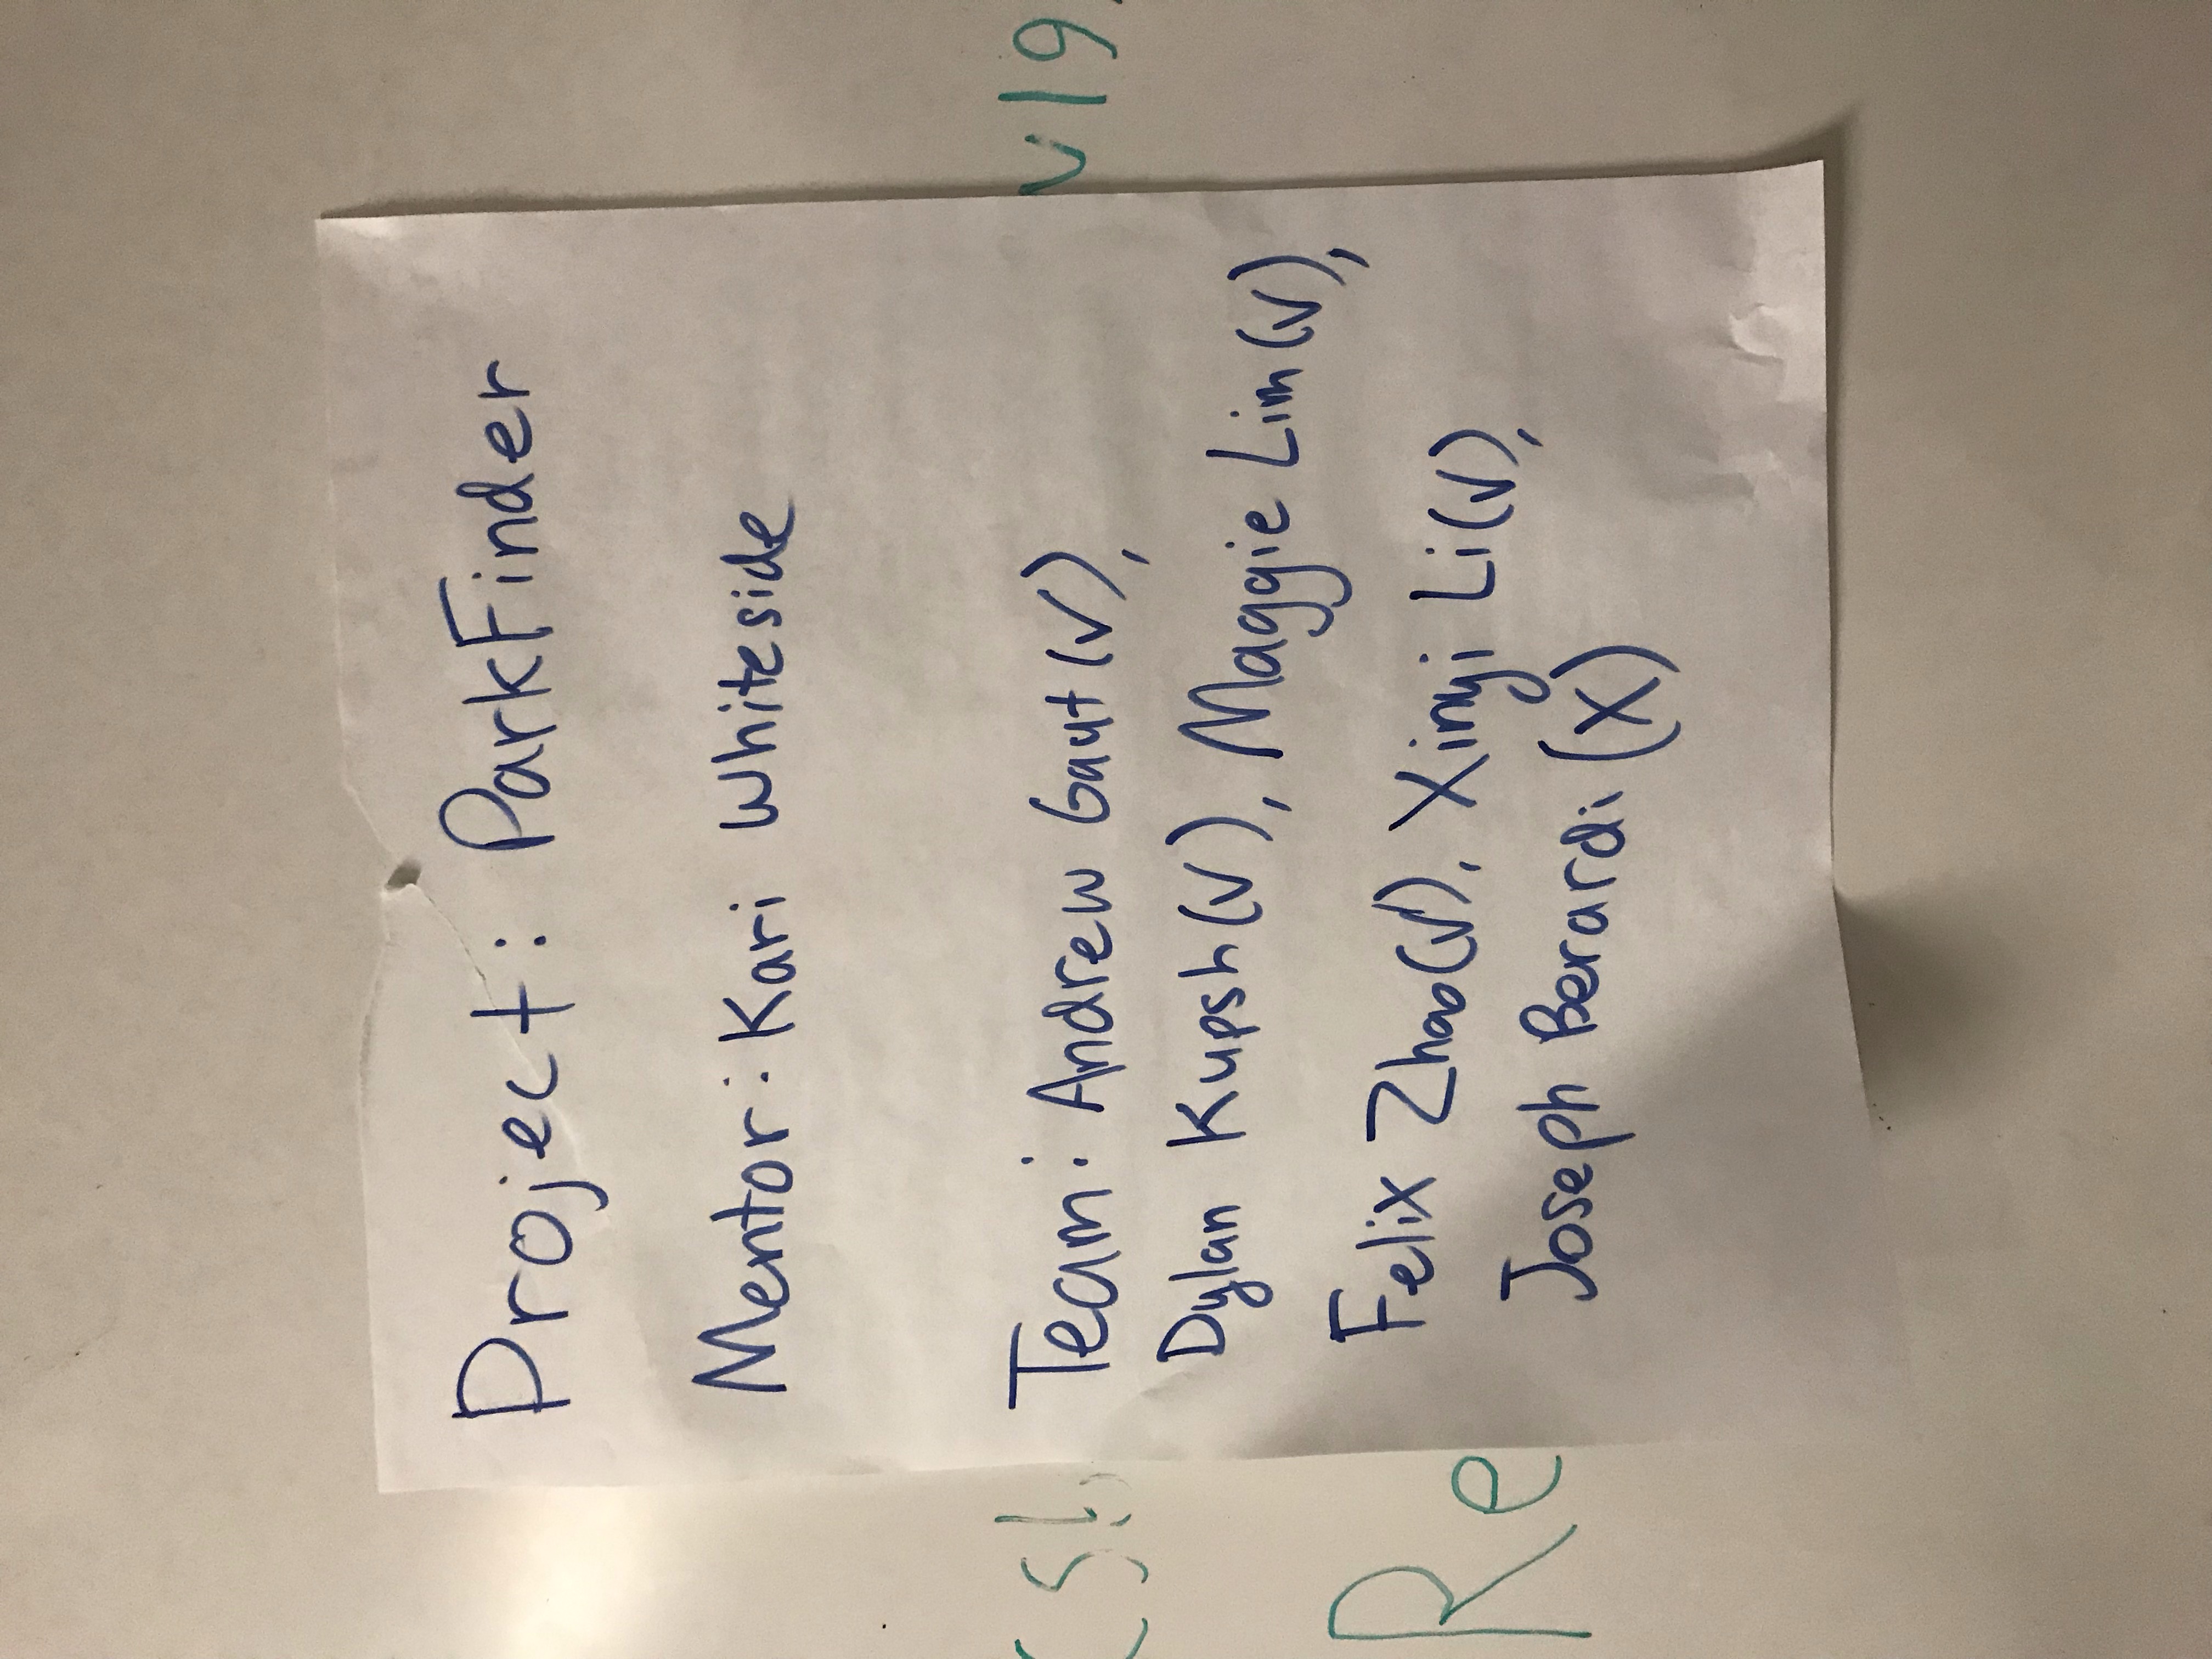 Project: ParkFinder
Mentor: Kari Whiteside
Team: Andrew Gaut (√),
Dylan Kupsh (√), Maggie Lim (√),
Felix Zhao (√), Xinyi Li (√),
Joseph Berardi (X)
v19
Re